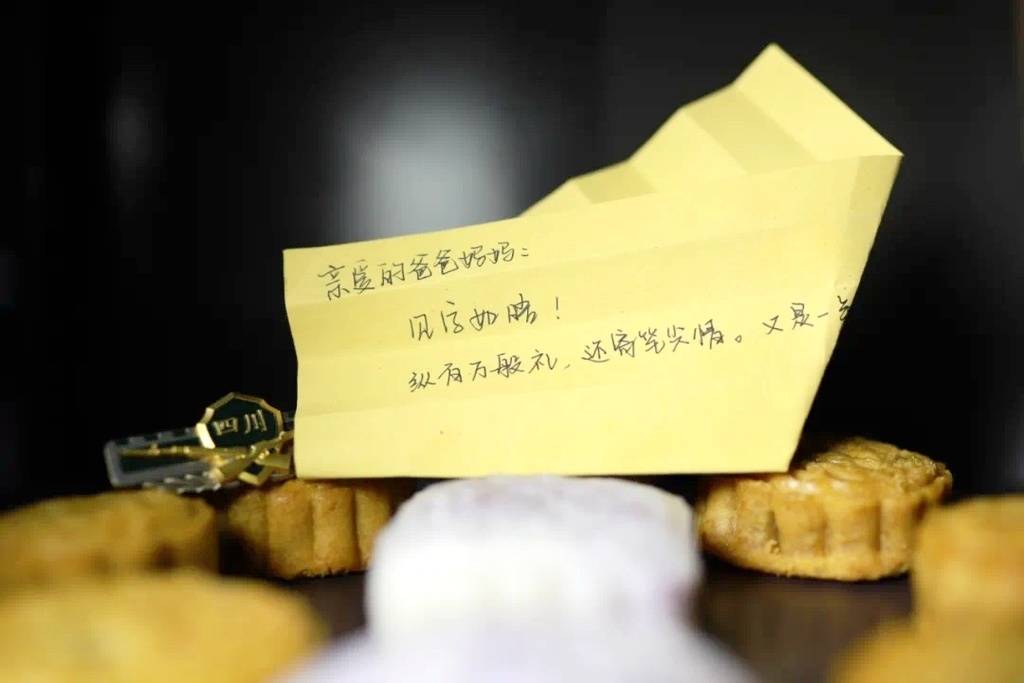 亲爱的爸爸妈妈：
见字如晤！
纵有万般礼，还寄笔尖情。又是一
四川